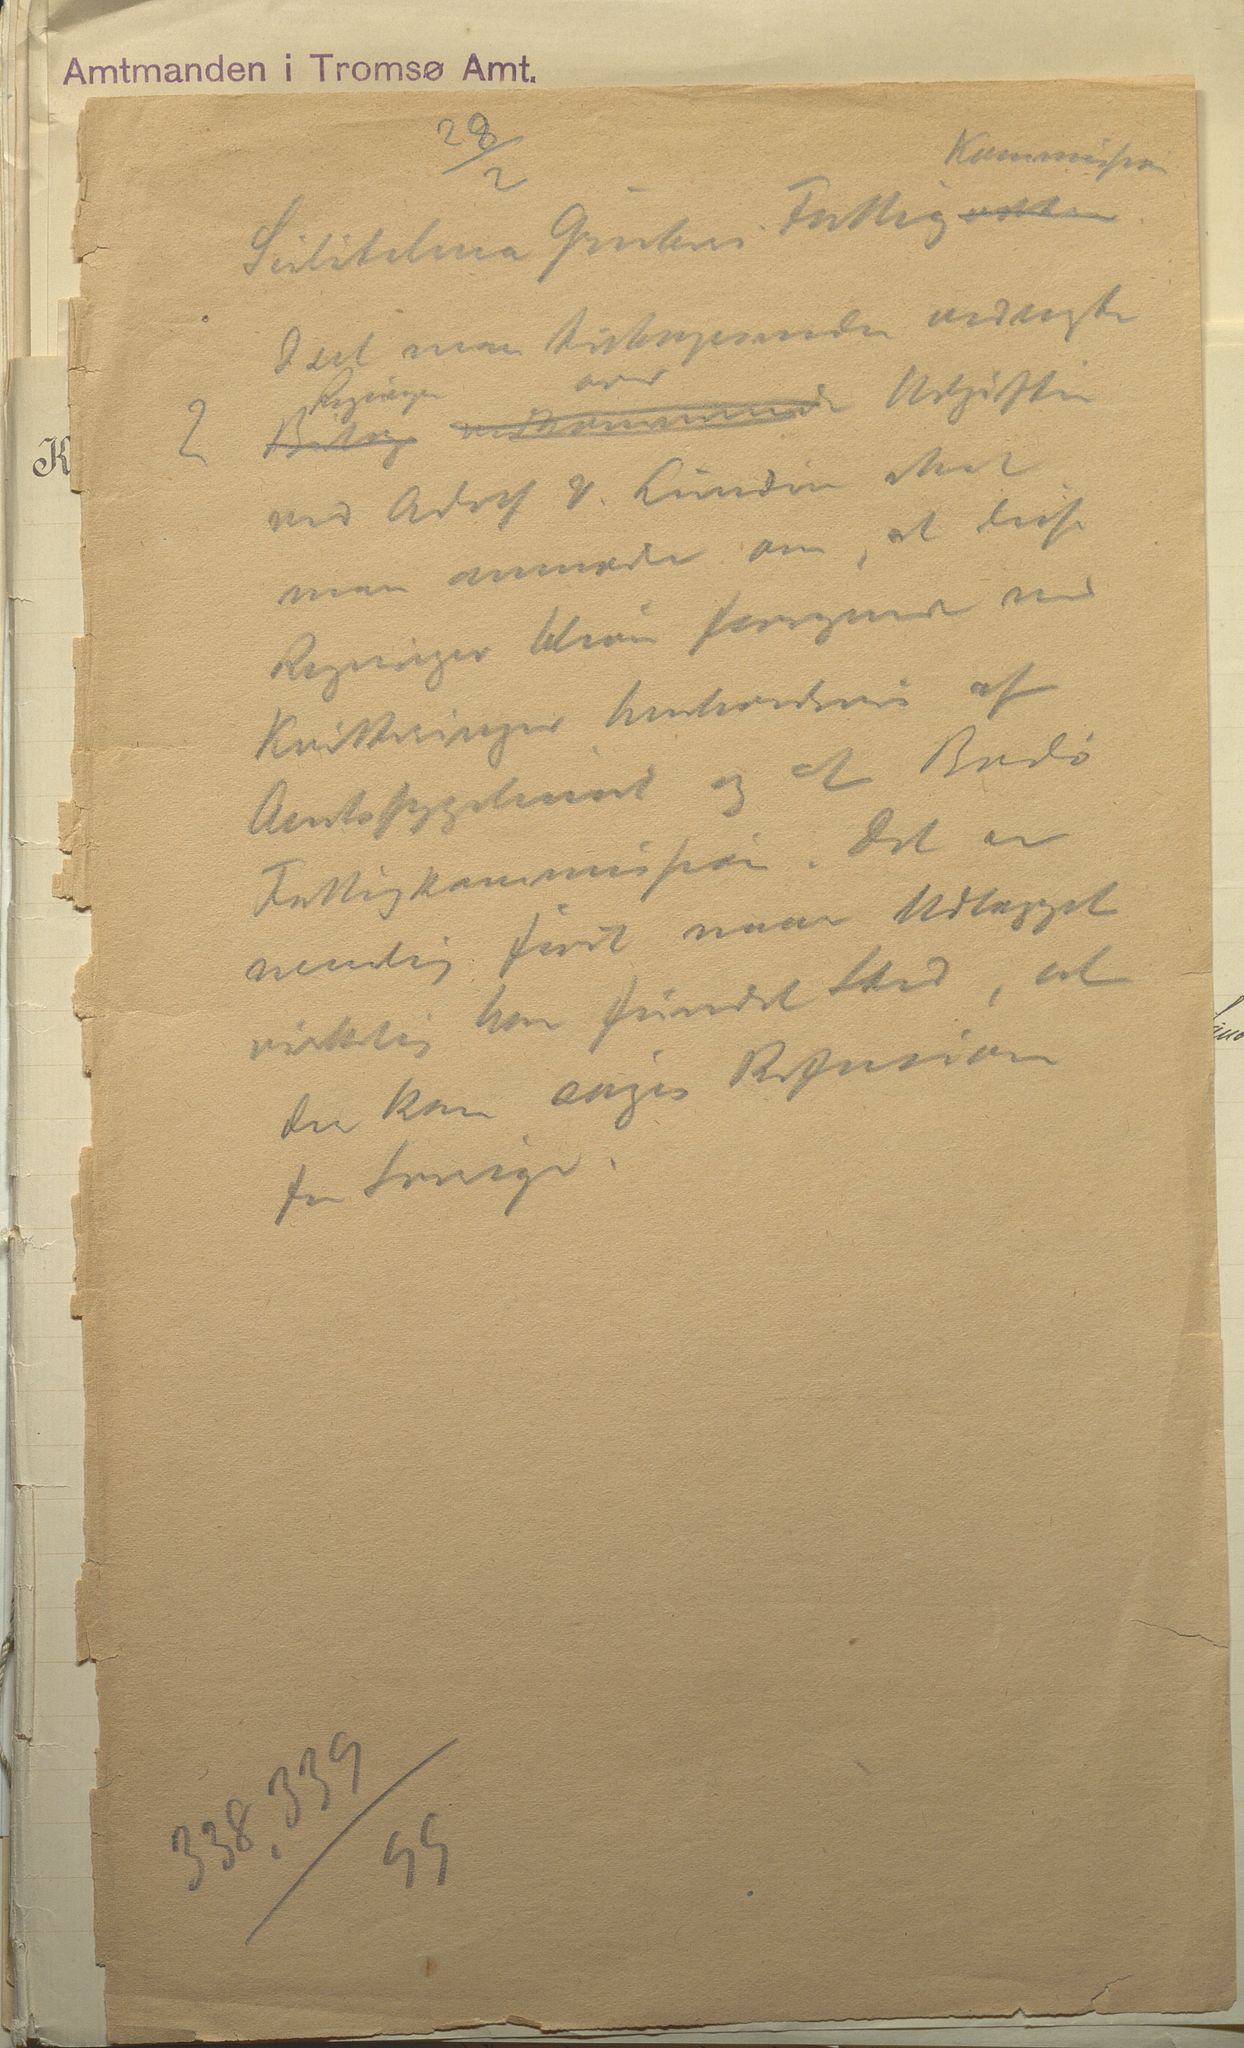 Amtmanden i Tromsø Amt.
28/2
Kommission
Sulitelma Grubers Fattig
Idet man tilbagesender vedlagte
Regninger over
2 Bilag vedkommende Udgifter
ved Adolf V. Lundin skal
man anmode om, at disse
Regninger bliver forsynede med
Kvitteringer henholdsvis af
Amtssygehuset og af Bodø
Fattigkommission. Det er
nemlig først naar Udlægget
virkelig har fundet Sted, at
der kan søges Refusion
fra Sverige.
338,339/99
K